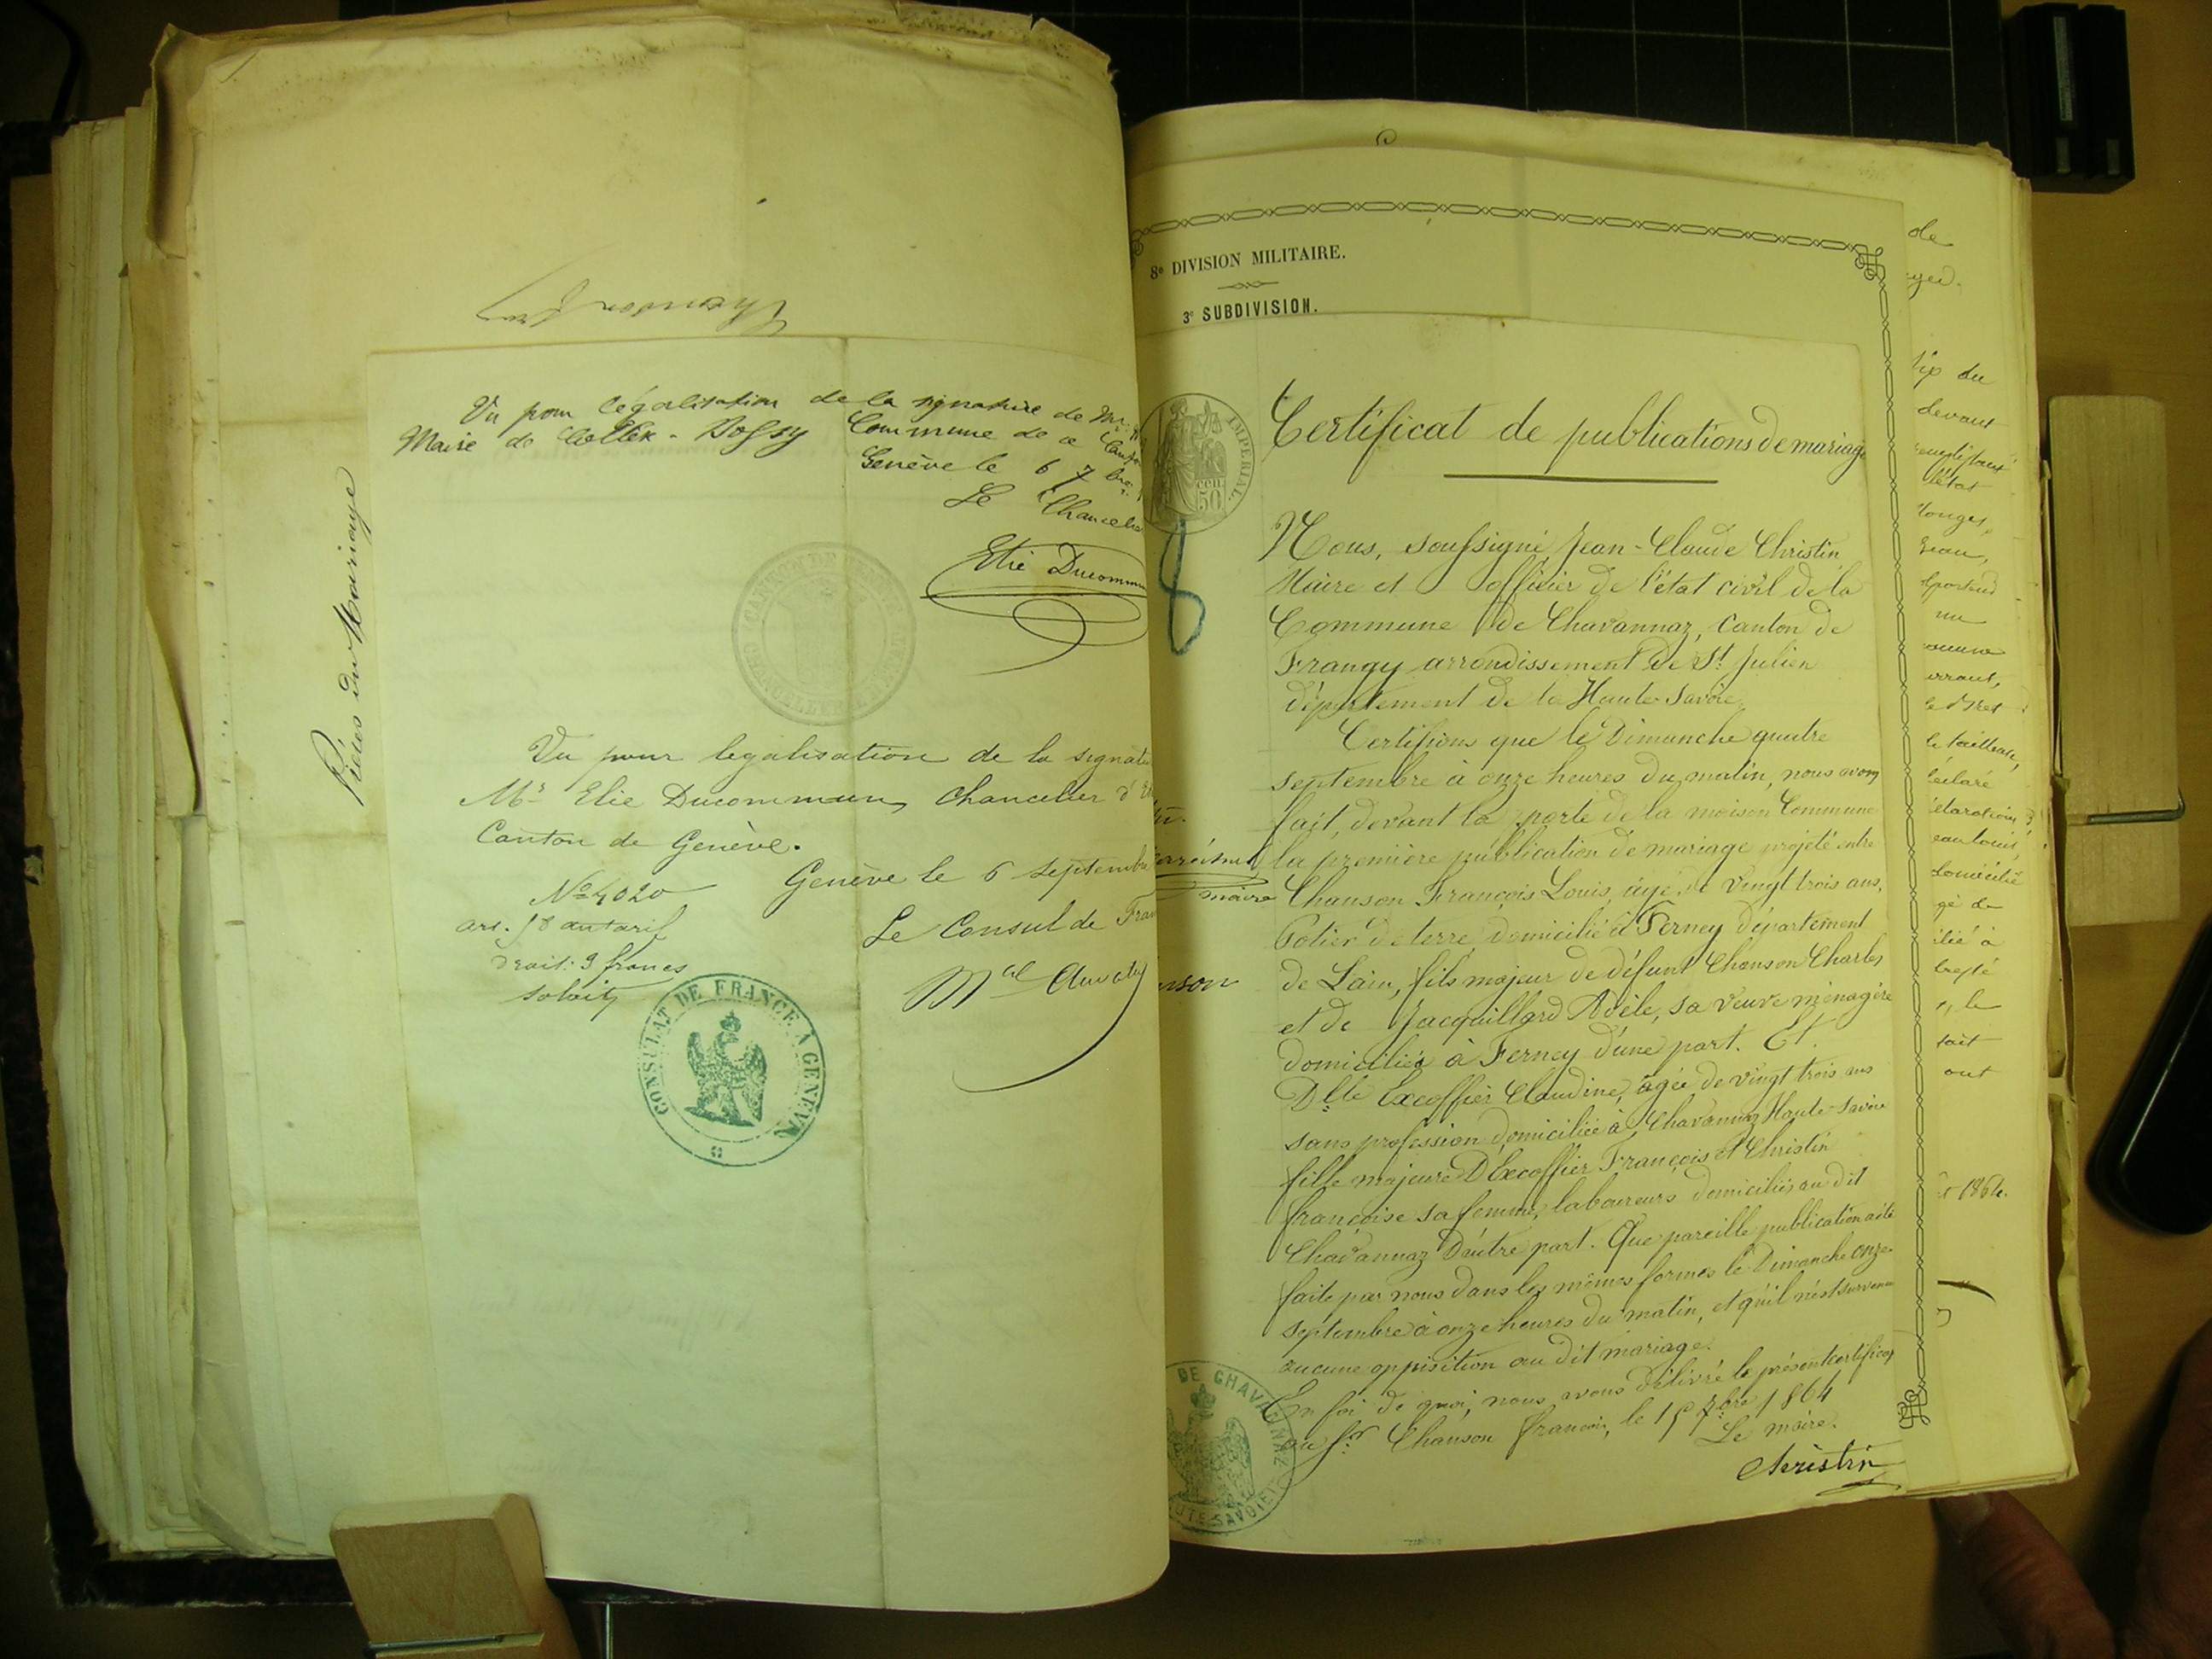 Chanson
Pièces du Mariage
Vu pour légalisation de la signature de Mr
Maire de Collex-Bossy Commune de ce Canton
Genève le 6 7bre
Le Chancelier
Elie Ducommun
CHANCELLERIE
Vu pour legalisation de la signatu
Mr Elie Ducommun, Chancelier d'Et
Canton de Genève.
Genève le 6 septembre
No 4020
art. 58 du tarif
droit: 3 francs
Le Consul de Fran
CONSULAT DE FRANCE À GENÈVE
8e DIVISION MILITAIRE.
3e SUBDIVISION.
IMPÉRIAL.
50 cen
8
maire
nson
Certificat de publications de mariage
Nous, soussigné Jean-Claude Christin
Maire et officier de l'état civil de la
Commune de Chavannaz, canton de
Frangy arrondissement de St Julien
département de la Haute Savoie,
Certifions que le Dimanche quatre
septembre à onze heures du matin, nous avons
fait, devant la porte de la maison Commune
la première publication de mariage projeté entre
Chanson François Louis, âgé de vingt trois ans,
Potier de terre, domicilié à Ferney département
de Lain, fils majeur de défunt Chanson Charles
et de Jacquillard Adèle, sa veuve ménagère
domiciliés à Ferney d'une part. Et.
Dlle Excoffier Claudine, âgée de vingt trois ans
sans profession domiciliée à Chavannaz Haute-Savoie
fille majeure D'Excoffier François et Christin
françoise sa femme, laboureurs domiciliés au dit
Chavannaz D'autre part. Que pareille publication a été
faite par nous dans les mêmes formes le Dimanche onze
septembre à onze heures du matin, et qu'il n'est survenu
aucune opposition au dit mariage.
En foi de quoi, nous avons délivré le présent certificat
au Sr Chanson françois, le 15 7bre 1864
Le maire.
Christin
DE CHAVANNAZ
HAUTE SAVOIE
de
devant
l'état
une
le tailleur,
domicilié
gé de
ilié à
, le
soit
ont
1864.